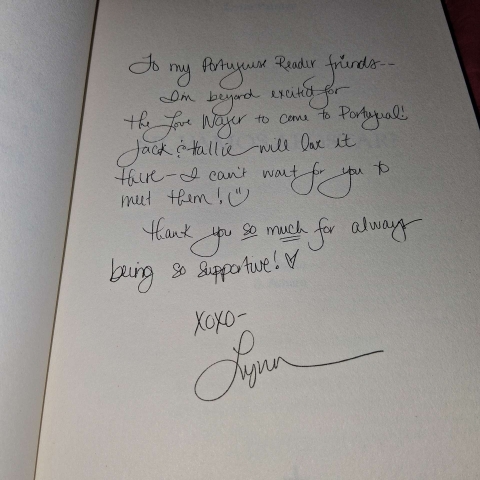 To my Portuguese Reader friends--
I'm beyond excited for
the Love Wager to come to Portugal!
Jack & Hallie will love it
there - I can't wait for you to
meet them! :)
Thank you so much for always
being so supportive! ♡
XOXO-
Lynn